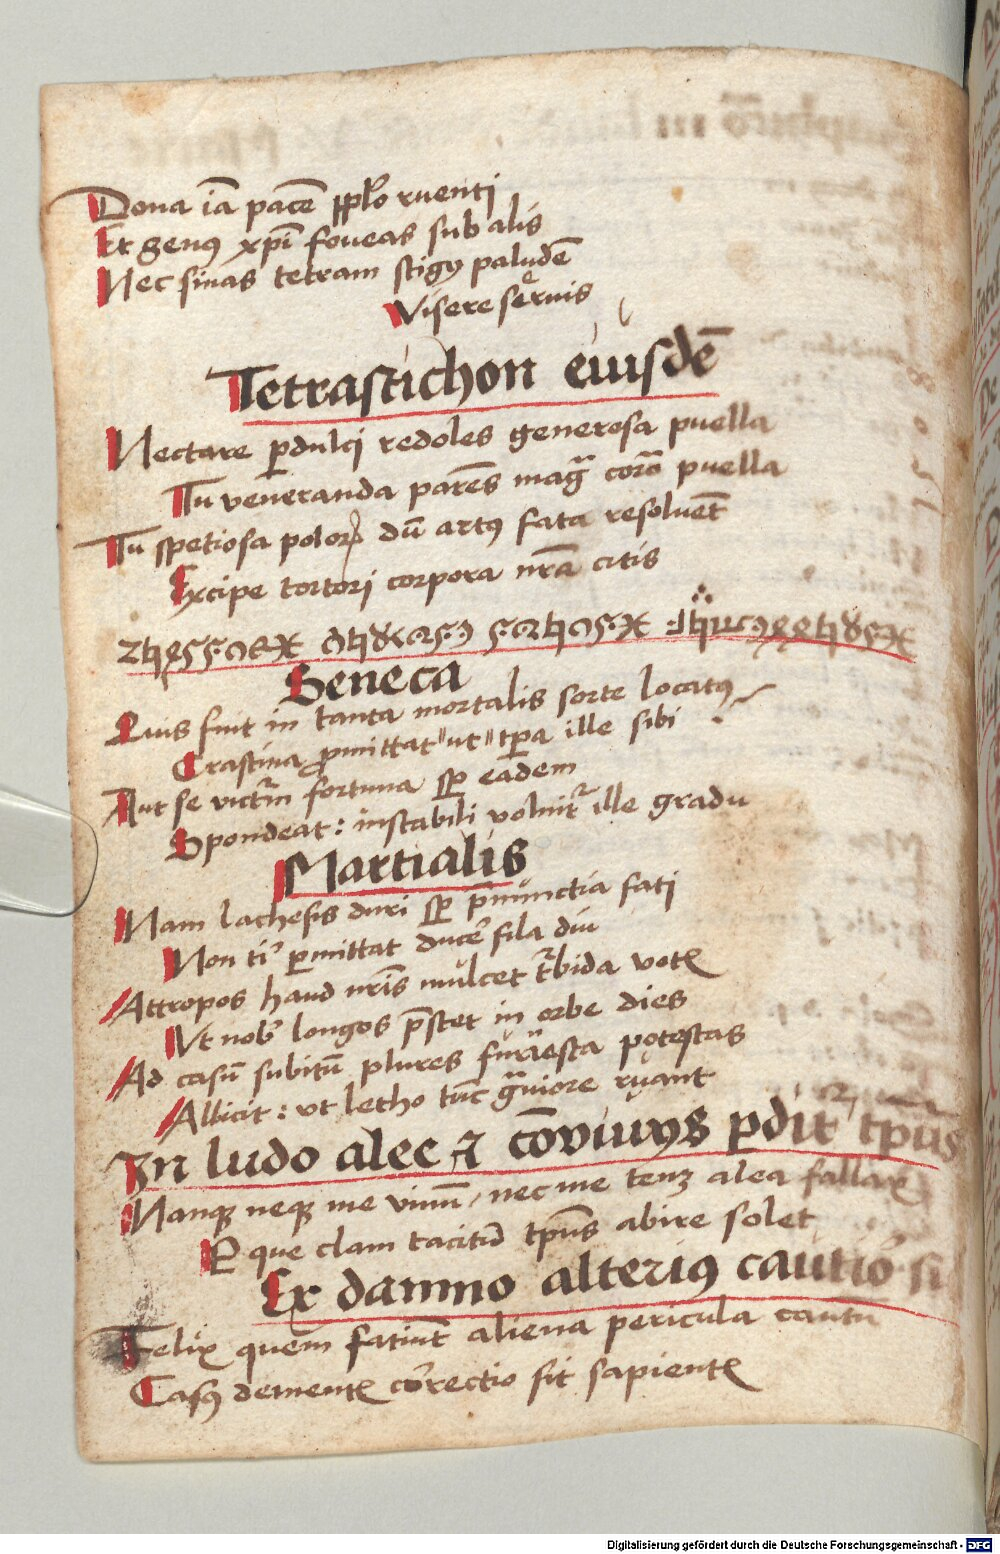 Dona iā pacē pplo ruenti
Et genꝰ xpi foveas sub alis
Nec sinas tetram stigꝭ paludē
Visere seruis
Tetrastichon eiusdē
Nectare ꝑdulci redoles generosa puella
Tu veneranda parēs magͣ corā puella
Tu spetiosa poloꝝ dū artꝰ fata resoluēt
Excipe tortori corpora nrā citis
Seneca
Quis fuit in tanta mortalis sorte locatꝰ
Crastina ꝓmittat "ut" tꝑa ille sibi
Aut se victrīn fortuna sꝑ eadem
Spondeat: instabili voluitᷣ ille gradu
Martialis
Nam lachesis duri sꝑ p̄nūnctia fati
Non tiᷣ ꝑmittat ducē fila diu
Attropos haud nrīs mulcet tᷣbida votꝭ
Vt nobᷤ longos p̄stet in orbe dies
Ad casū subitū plures funesta potestas
Allicit: vt letho tūc gͣuiore ruant
In ludo alee ⁊ cōviuiis ꝑdit tp̄us
Nanqꝫ neqꝫ me vinū, nec me tenꝫ alea fallax
Ꝑ que clam tacitū tp̄us abire solet
Ex damno alteriꝰ cautiō si
Felix quem fatiūt aliena pericula cautū
Casꝰ dementꝭ cōrectio fit sapientꝭ
Digitalisierung gefördert durch die Deutsche Forschungsgemeinschaft - DFG